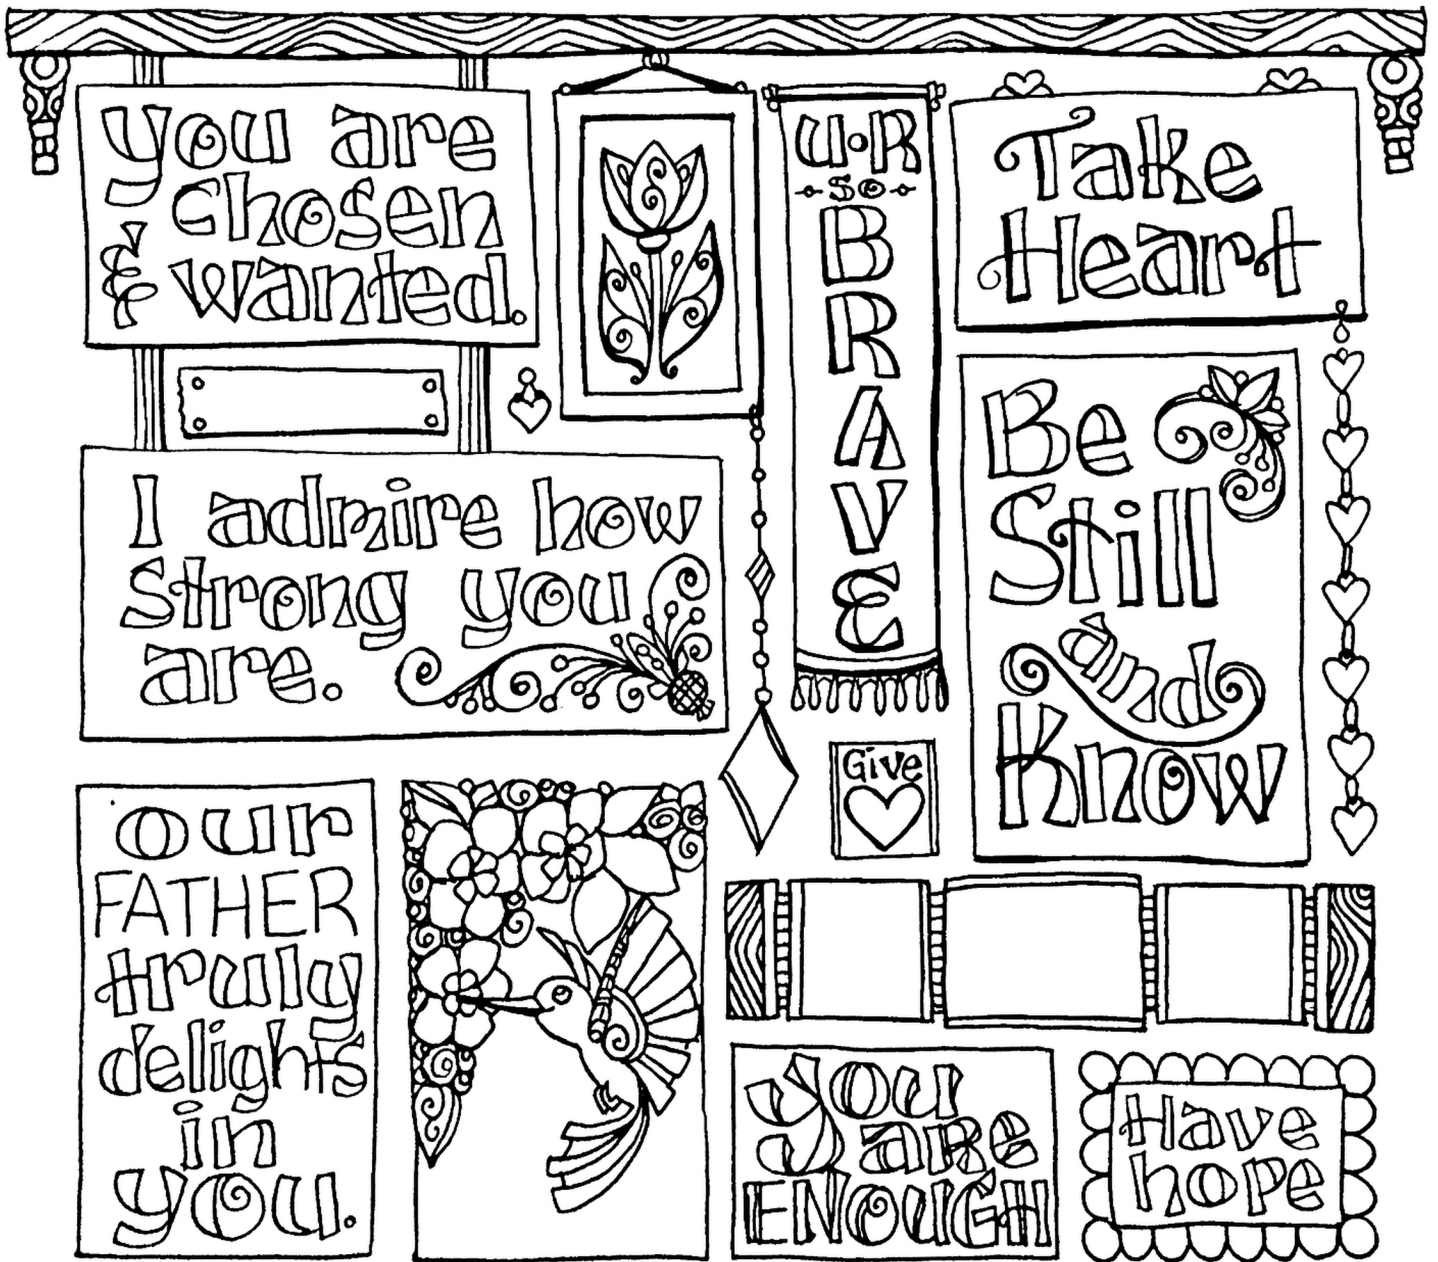 You are
chosen
& wanted.
U•R
so
BRAVE
Take
Heart
I admire how
strong you
are.
Be
Still
and
Know
Give
our
FATHER
truly
delights
in
you.
You
are
ENOUGH
Have
hope